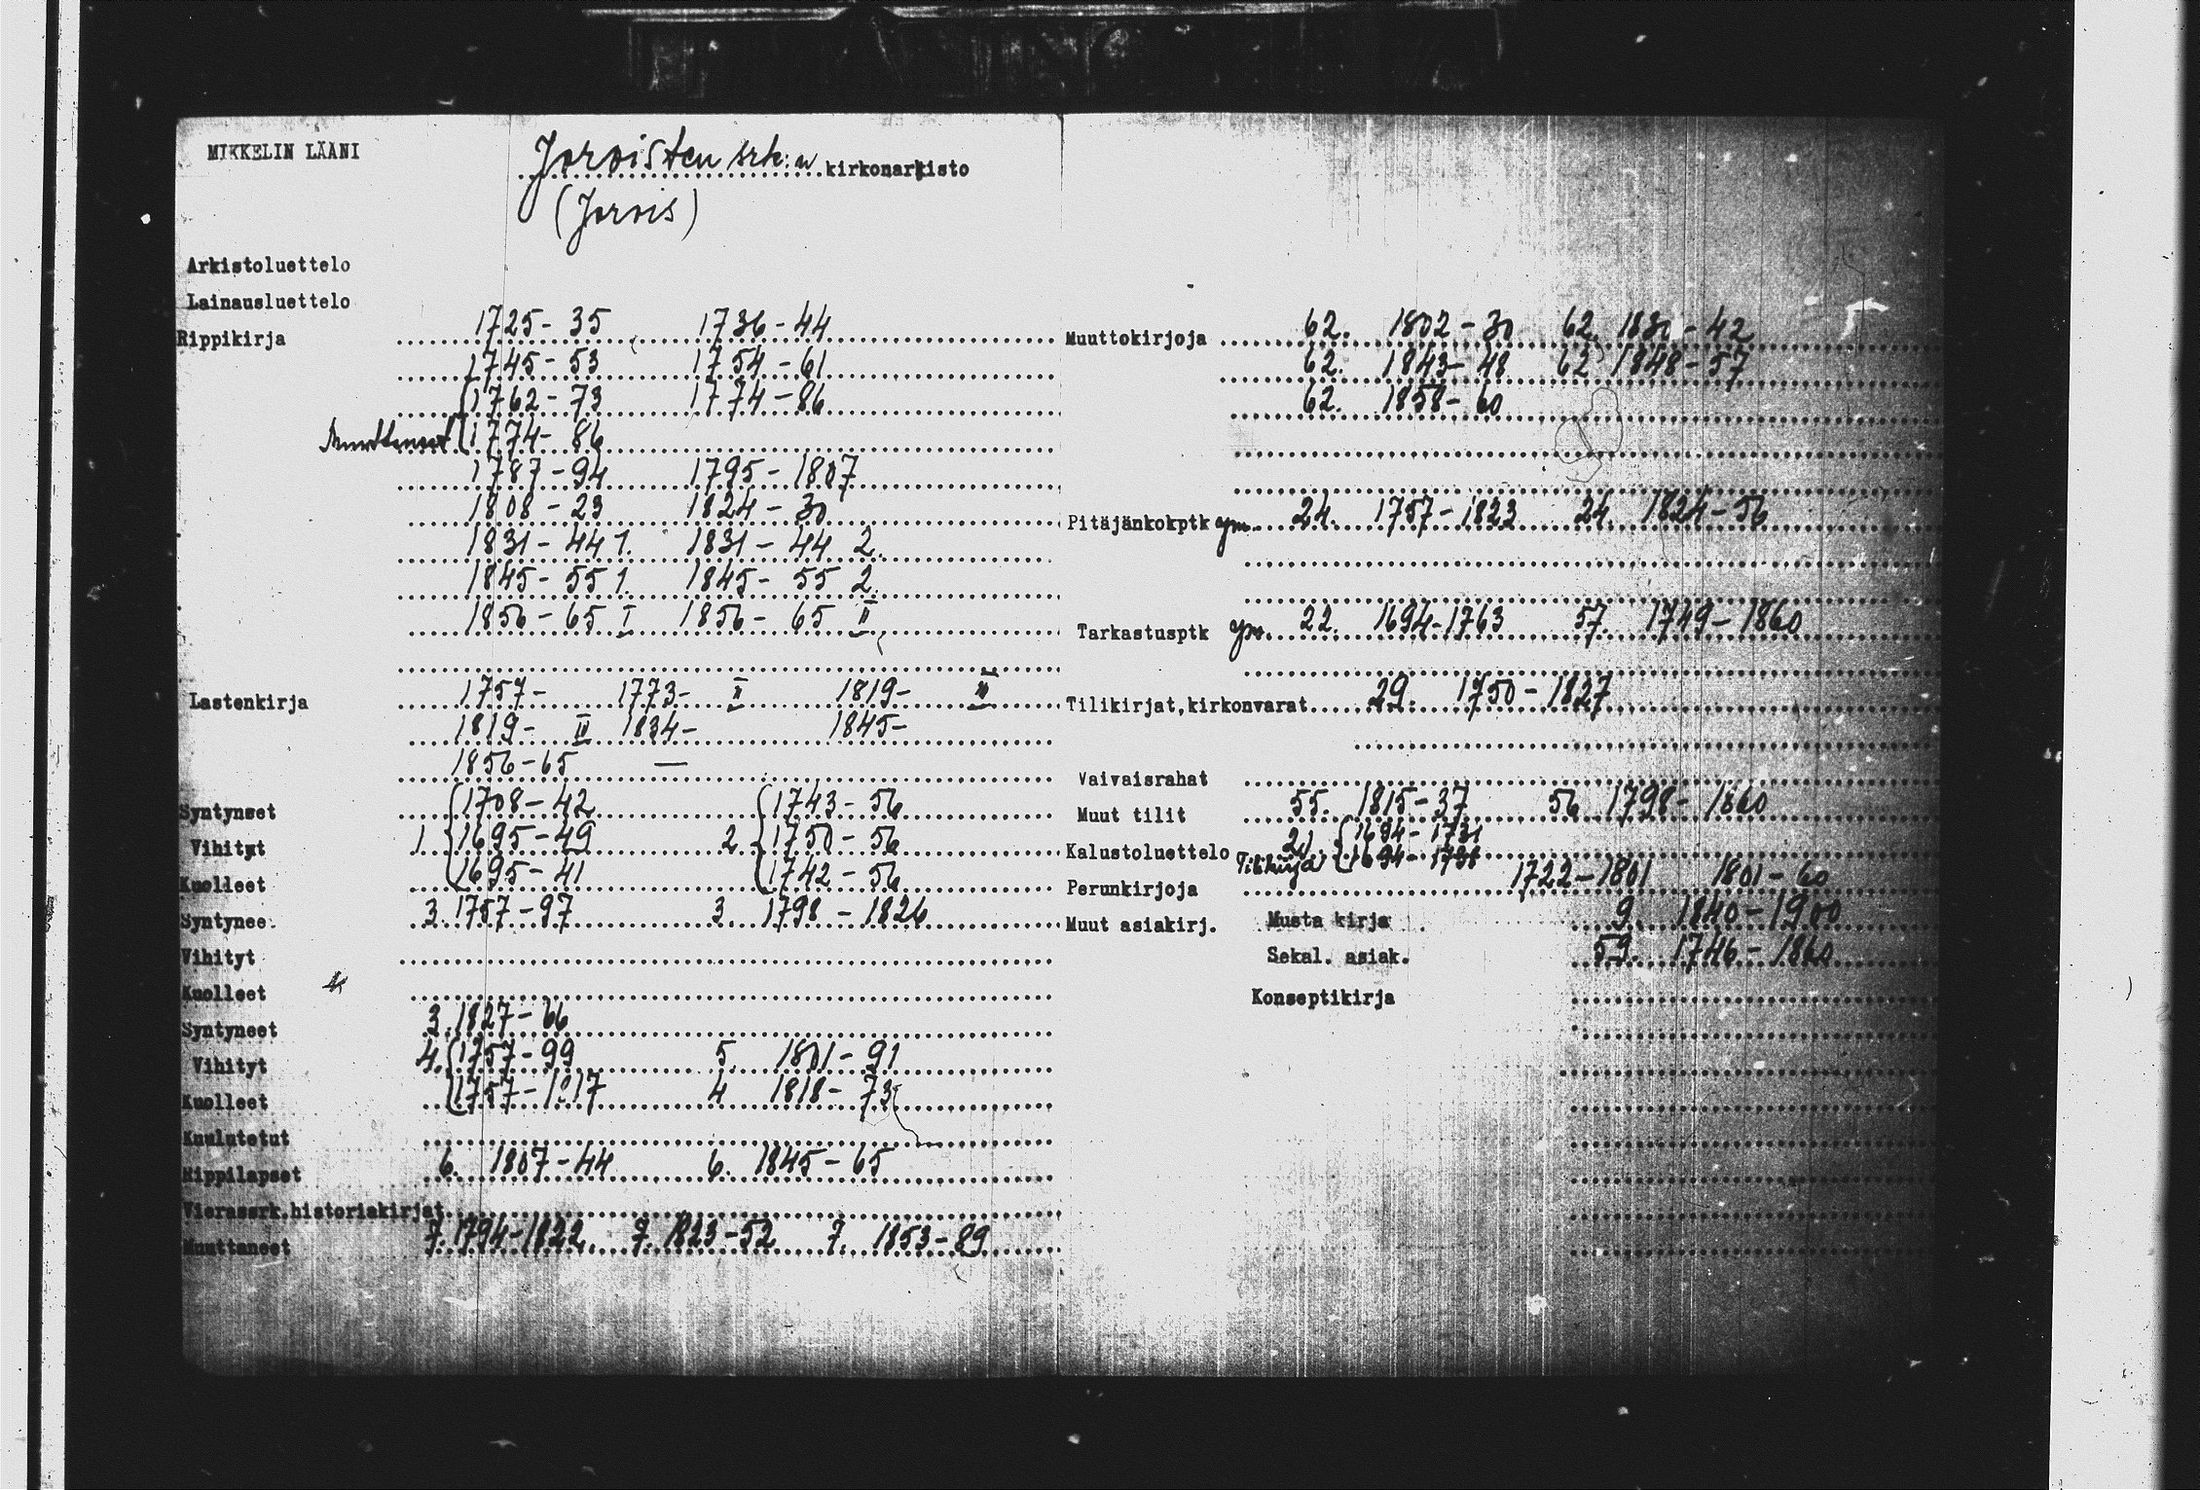 MIKKELIN LÄÄNI
Joroisten srk:n kirkonarkisto
(Jorois)
Arkistoluettelo
Lainausluettelo
Rippikirja 1725-35 1736-44
1745-53 1754-61
1762-73 1774-86
1774-86
1787-94 1795-1807
1808-23 1824-30
1831-44 1. 1831-44 2.
1845-55 1. 1845-55 2.
1856-65 I 1856-65 II
Lastenkirja 1757- 1773- II 1819-
1819- 1834- 1845-
1856-65 —
Syntyneet 1708-42 1743-56
Vihityt 1 1695-49 2 1750-56
Kuolleet 1695-41 1742-56
Syntynee. 3. 1757-97 3. 1798-1826
Vihityt
Kuolleet
Syntyneet 3. 1827-66
Vihityt 4. 1757-99 5. 1801-91
Kuolleet 1757-1817 4 1818-73
Kuulutetut
Rippilapset 6. 1807-44 6. 1845-65
Vierassrk.historiakirjat
Muuttaneet 7. 1794-1822 7. 1823-52 7. 1853-89
Muuttokirjoja 62. 1802-30 62. 1830-42
62. 1843-48 62 1848-57
62. 1858-60
Pitäjänkokptk ym. 24. 1757-1823 24. 1824-56
Tarkastusptk ym. 22. 1694-1763 57. 1749-1860
Tilikirjat,kirkonvarat 29. 1750-1827
Vaivaisrahat
Muut tilit 55. 1815-37 56 1798-1860
Kalustoluettelo 21. 1694-1731
Tilikirja 1694-1731
Perunkirjoja 1722-1801 1801-60
Muut asiakirj. Musta kirja 9. 1840-1900
Sekal. asiak. 59. 1746-1860
Konseptikirja